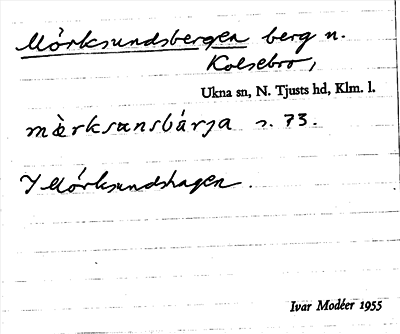 Mörksundsbergen berg n.
Kolsebro,
Ukna sn, N. Tjusts hd, Klm. l.
mœ̀rksɑnsbárja s. 73.
Y Mörksundshagen.
Ivar Modéer 1955